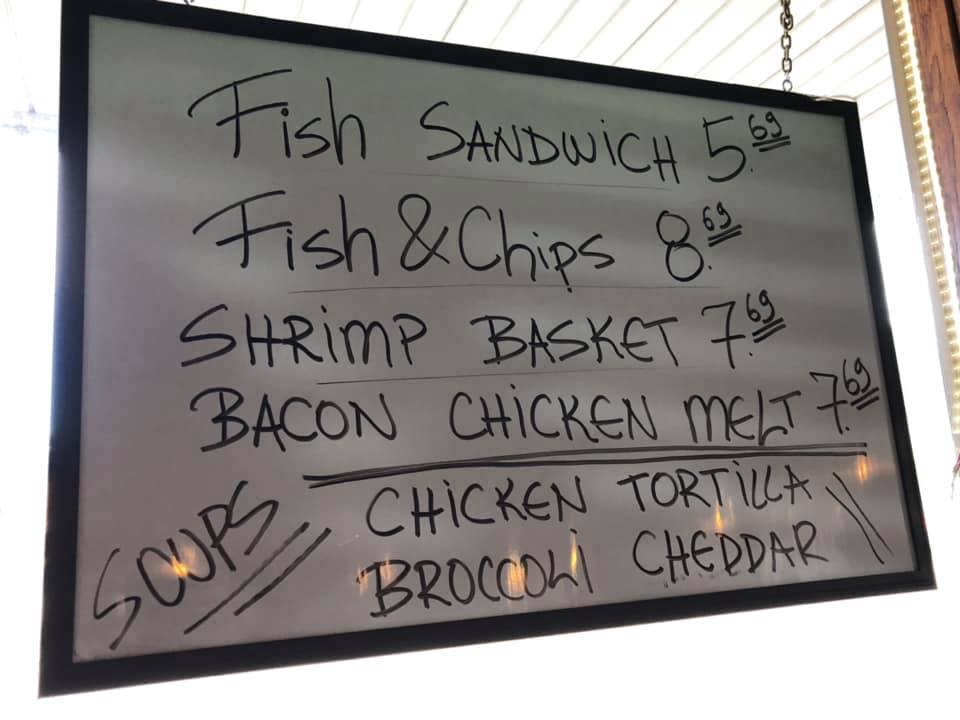 Fish SANDWICH 5.69
Fish & Chips 8.69
SHRIMP BASKET 7.69
BACON CHICKEN MELT 7.69
SOUPS
CHICKEN TORTILLA
BROCCOLI CHEDDAR